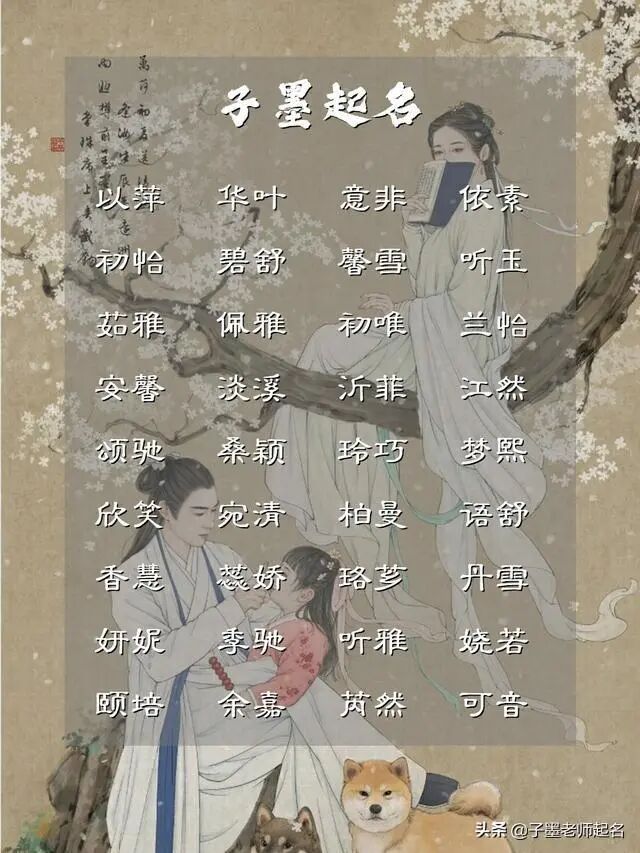 子墨起名
以萍 华叶 意非 依素
初怡 碧舒 馨雪 听玉
茹雅 佩雅 初唯 兰怡
安馨 淡溪 沂菲 江然
颂驰 桑颖 玲巧 梦熙
欣笑 宛清 柏曼 语舒
香慧 蕊娇 珞芗 丹雪
妍妮 季驰 听雅 娆若
颐培 余嘉 芮然 可音
头条 @子墨老师起名